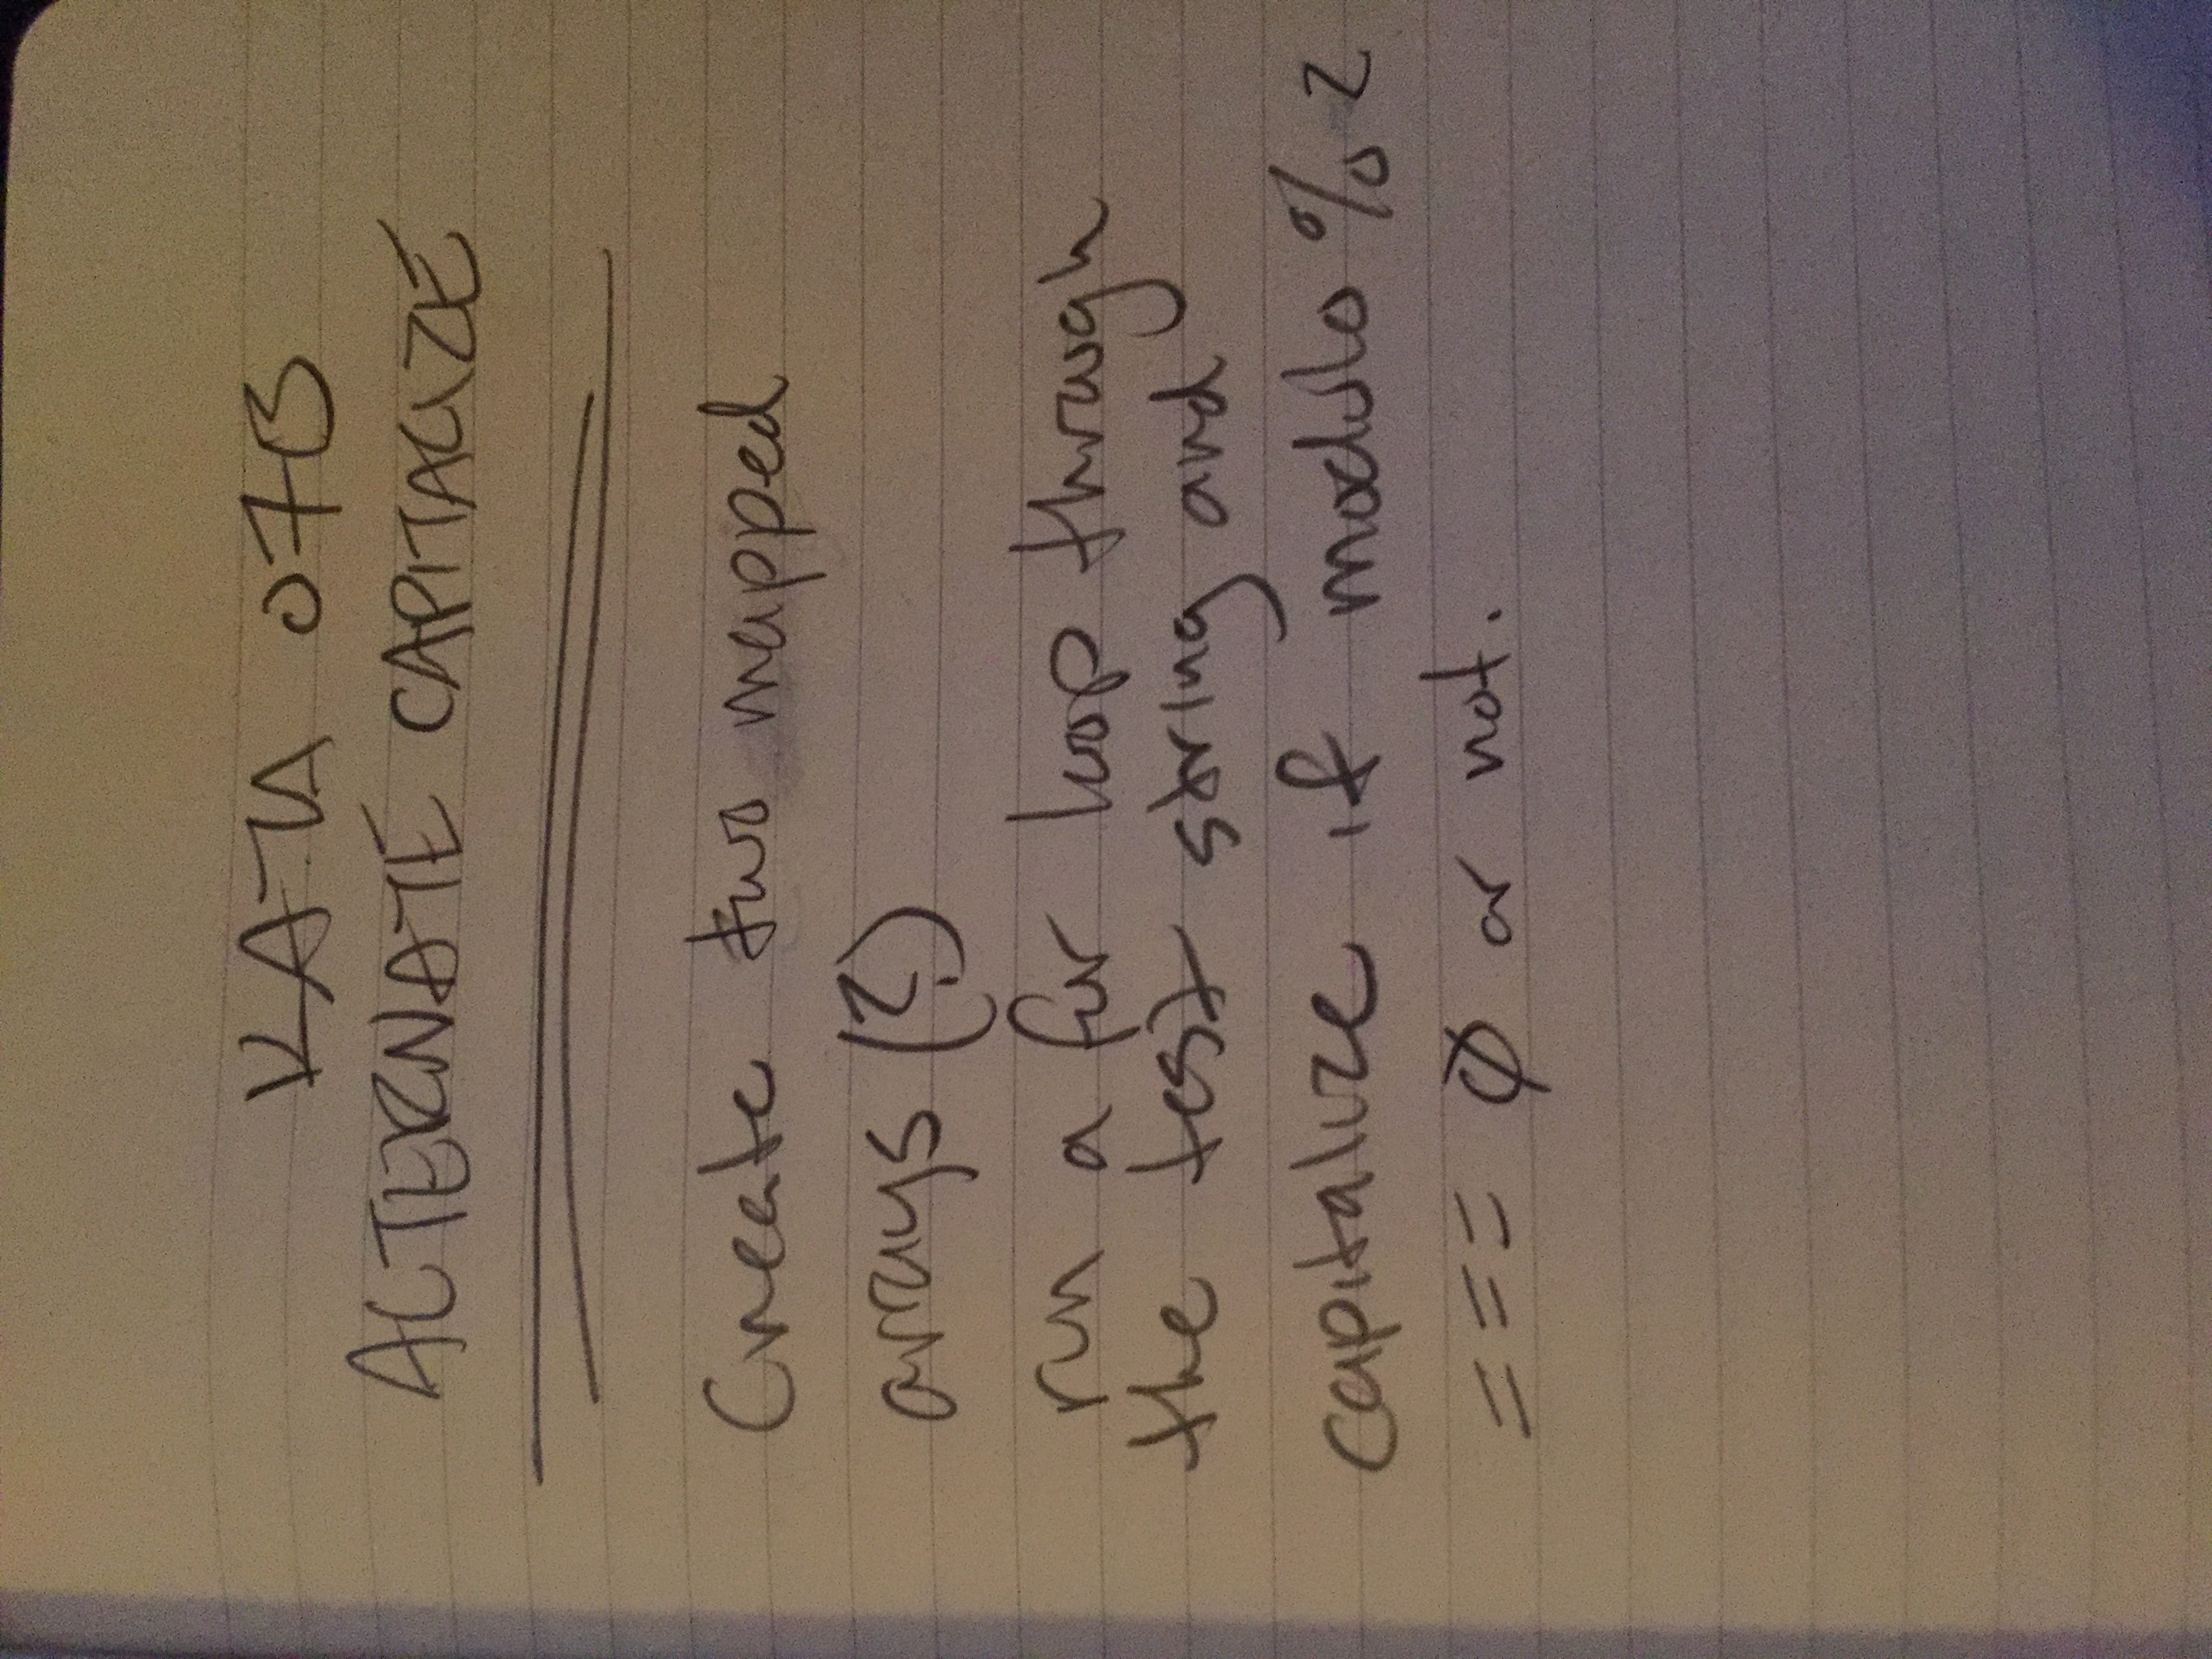 KATA 07B
ALTERNATE CAPITALIZE
Create two mapped
arrays (?)
run a for loop through
the test string and
capitalize if modulo % 2
=== Ø or not.